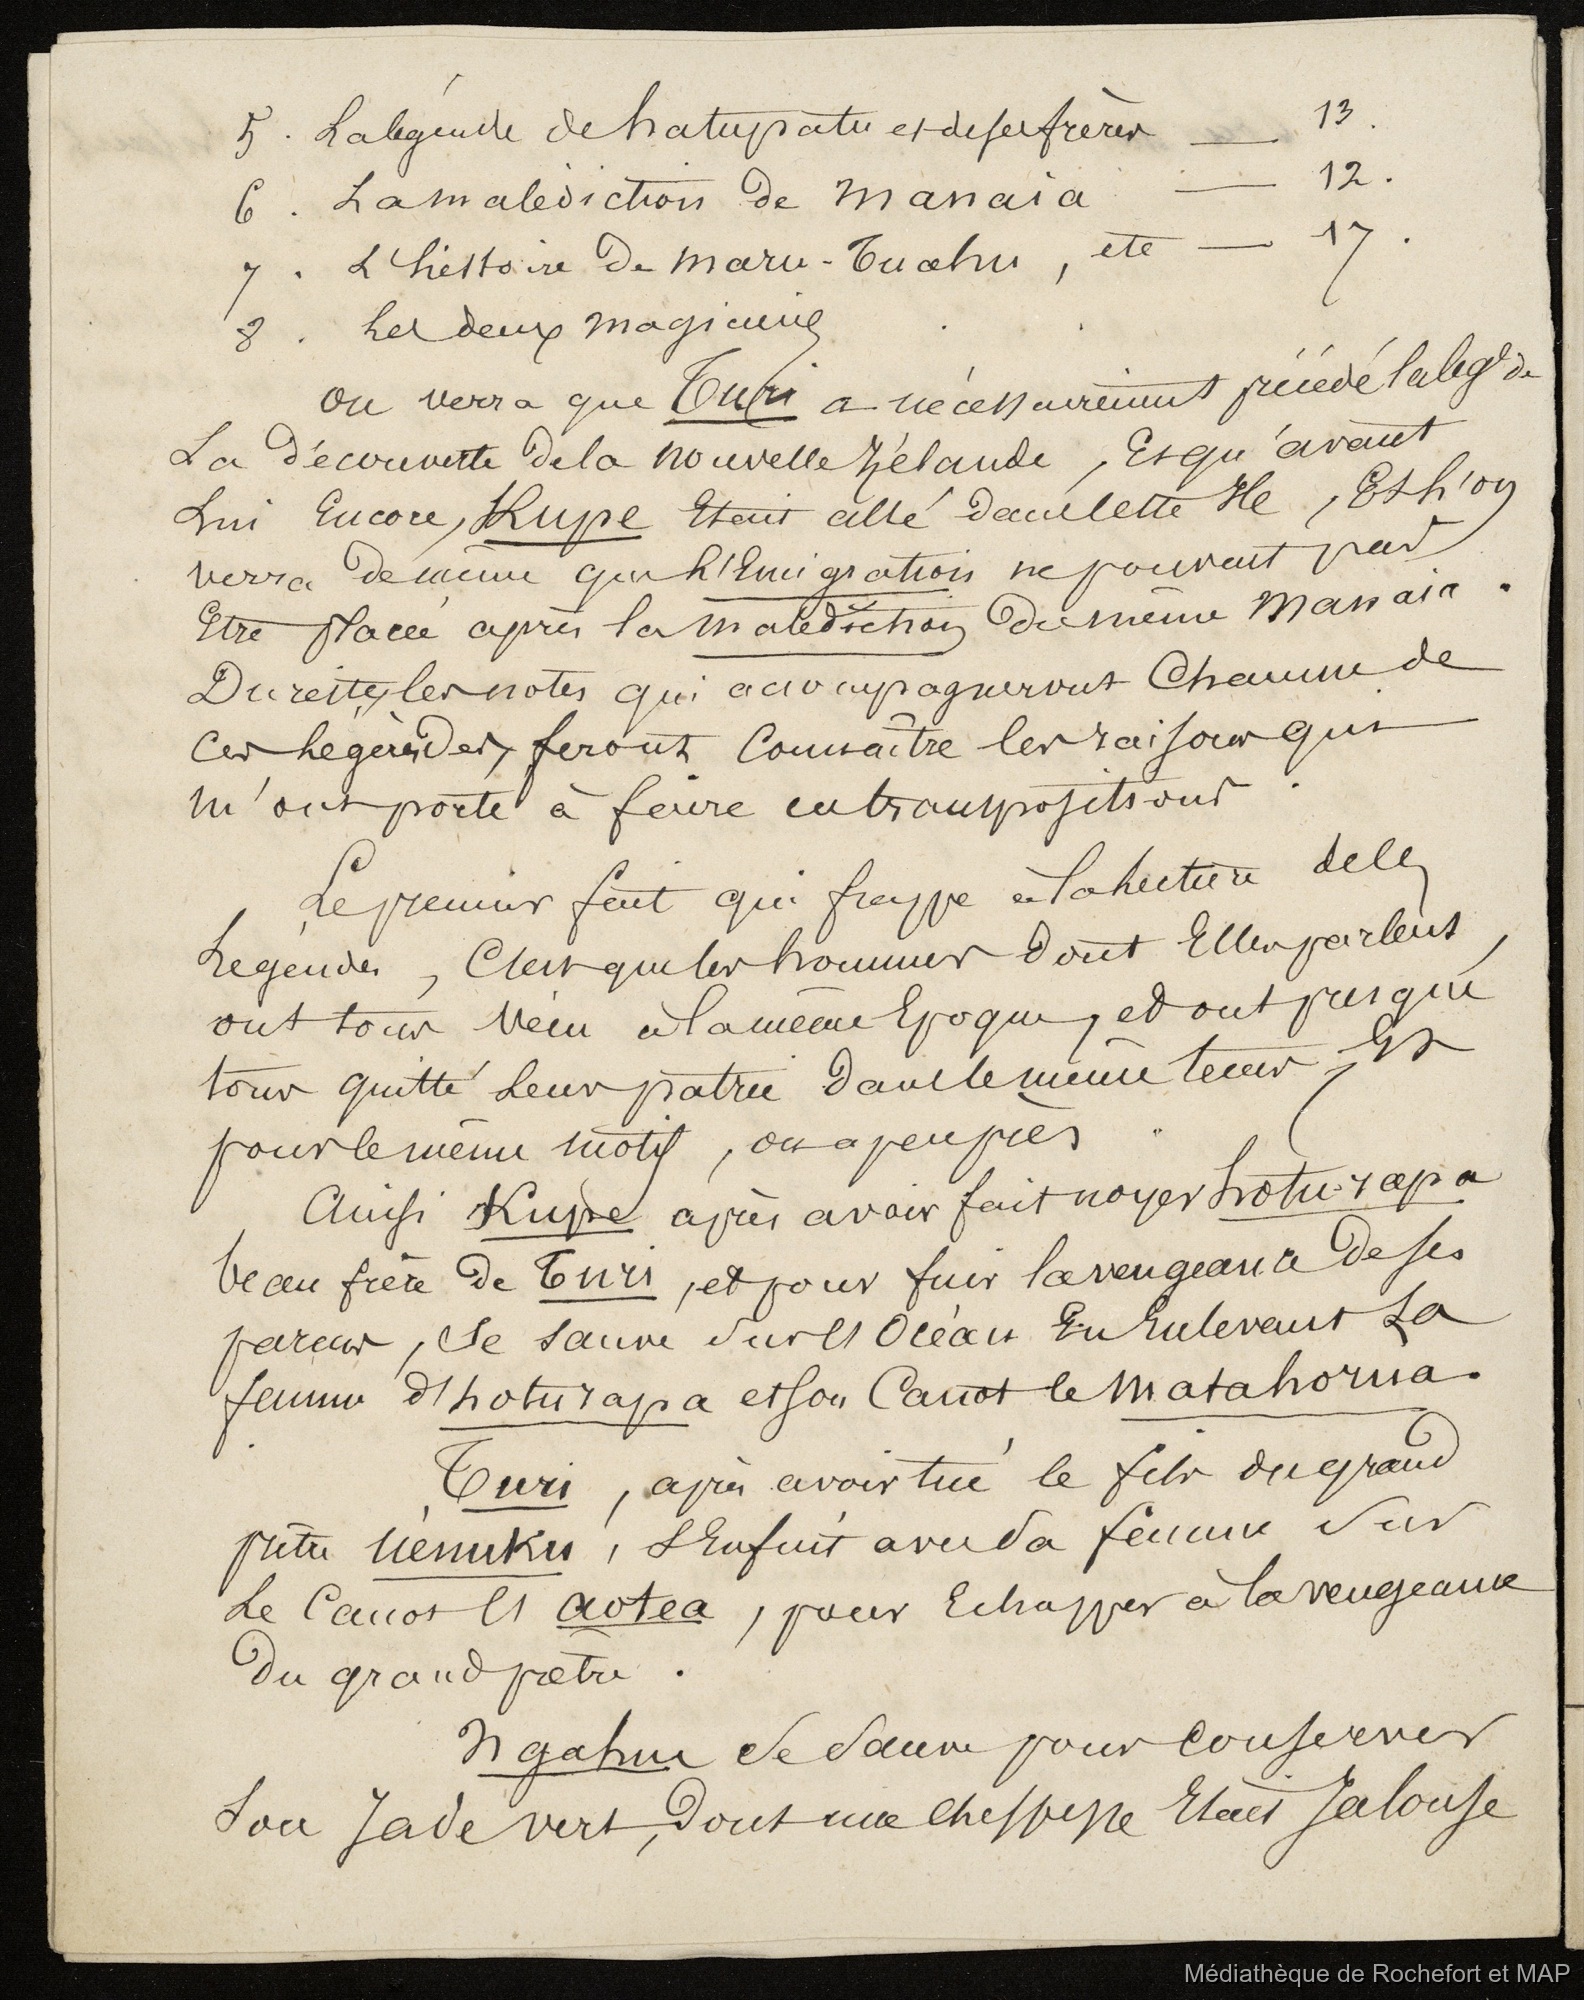 5. La légende de hatupatu et de ses frères — 13.
6. La malédiction de Manaia — 12.
7. L'histoire de Maru-Tuahu, etc — 17.
8. Les deux magiciens
On verra que Turi a nécessairement précédé la légde de
La découverte de la nouvelle Zélande, Et qu'avant
Lui Encore, Kupe Etait allé dans cette Ile, Et l'on
verra de même que l'Emigration ne pouvait pas
Etre placée après la malédiction du même Manaia.
Du reste, les notes qui accompagneront Chacune de
Ces Légendes, feront Connaître les raisons qui
m'ont porté à faire ces transpositions.
Le premier fait qui frappe à la lecture de ces
Légendes, C'est que les hommes dont Elles parlent,
ont tous vécu à la même Epoque, et ont presque
tous quitté leur patrie dans le même tems, Et
pour le même motif, ou a peu près.
Ainsi Kupe après avoir fait noyer hotu-rapa
beau frère de Turi, et pour fuir la vengeance de ses
parens, Se sauve sur l'Océan En Enlevant La
femme d'hoturapa et son Canot le Matahorua.
Turi, après avoir tué le fils du grand
prêtre Uenuku, S'Enfuit avec sa femme sur
Le Canot l'aotea, pour Echapper à la vengeance
Du grand prêtre.
Ngahue se sauve pour conserver
Son Jade vert, dont une cheffesse Etait Jalouse
Médiathèque de Rochefort et MAP